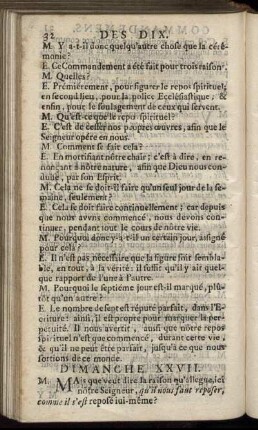 32 DES DIX.
M. Y a-t-il donc quelqu'autre chose que la céré-
monie?
E. Ce Commandement a été fait pour trois raisons,
M. Quelles?
E. Prémiérement, pour figurer le repos spirituel;
en second lieu, pour la police Ecclésiastique; &
enfin, pour le soulagement de ceux qui servent.
M. Qu'est-ce que le repos spirituel?
E. C'est de cesser nos propres œuvres, afin que le
Seigneur opére en nous.
M. Comment se fait cela?
E. En mortifiant nôtre chair; c'est à dire, en re-
nonçant à nôtre nature, afin que Dieu nous con-
duise, par son Esprit.
M. Cela ne se doit-il faire qu'un seul jour de la se-
maine, seulement?
E. Cela se doit faire continuellement; car depuis
que nous avons commencé, nous devons conti-
nuer, pendant tout le cours de nôtre vie.
M. Pourquoi donc y-a-t-il un certain jour, assigné
pour cela?
E. Il n'est pas nécessaire que la figure soit sembla-
ble, en tout, à la vérité: il suffit qu'il y ait quel-
que rapport de l'une à l'autre.
M. Pourquoi le septiéme jour est-il marqué, plû-
tôt qu'un autre?
E. Le nombre de sept est réputé parfait, dans l'E-
criture: ainsi, il est propre pour marquer la per-
pétuité. Il nous avertit, aussi que nôtre repos
spirituel n'est que commencé, durant cette vie,
& qu'il ne peut être parfait, jusqu'à ce que nous
sortions de ce monde.
DIMANCHE. XXVII.
M. MAis que veut dire la raison qu'allegue, ici
nôtre Seigneur, qu'il nous faut reposer,
comme il s'est reposé lui-même?